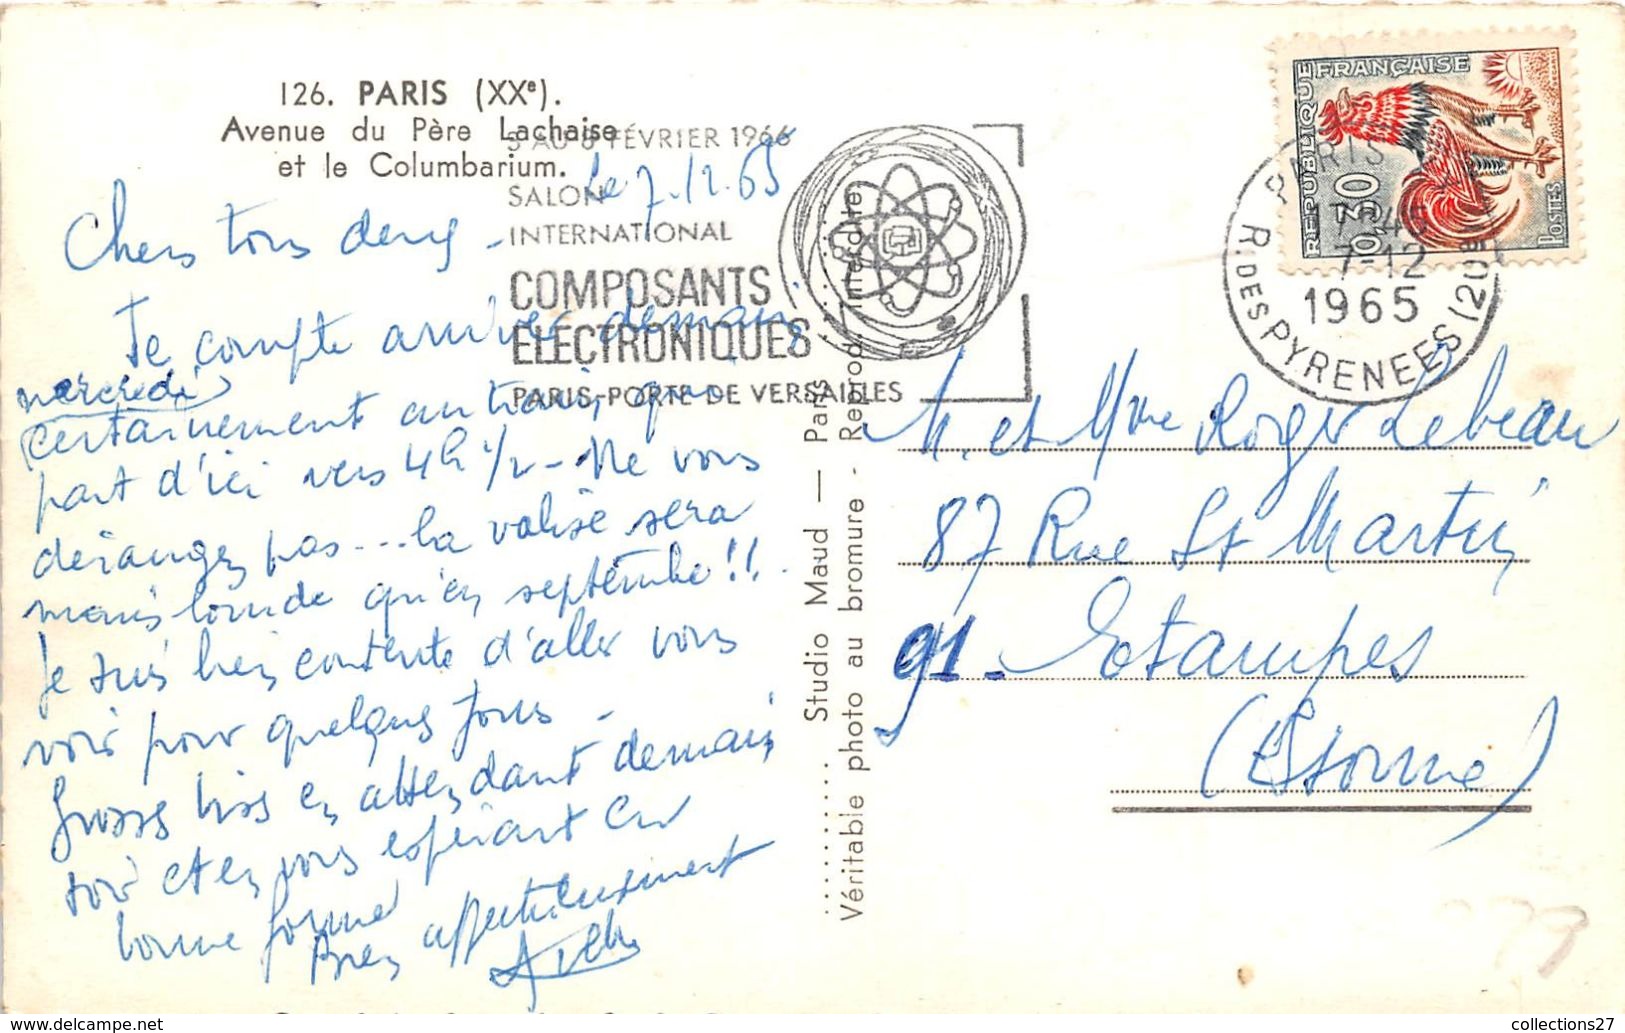 126. PARIS (XXe).
Avenue du Père Lachaise
et le Columbarium.
3 AU 8 FÉVRIER 1966
SALON
INTERNATIONAL
COMPOSANTS
ELECTRONIQUES
PARIS-PORTE DE VERSAILLES
Le 7.12.65
Chers tous deux -
Je compte arriver demain
mercredi
certainement au train qui
part d'ici vers 4h 1/2 - Ne vous
dérangez pas... la valise sera
moins lourde qu'en septembre !!
Je suis bien contente d'aller vous
voir pour quelques jours -
Grosses bises en attendant demain
soir et en vous espérant en
bonne forme
Bien affectueusement
Studio Maud — Paris
Véritable photo au bromure - Reprod. interdite
RÉPUBLIQUE FRANÇAISE
0,30
POSTES
PARIS
17H45
7-12
1965
R. DES PYRENEES (20e)
M. et Mme Roger Lebeau
87 Rue St Martin
91 - Etampes
(Essonne)
collections27